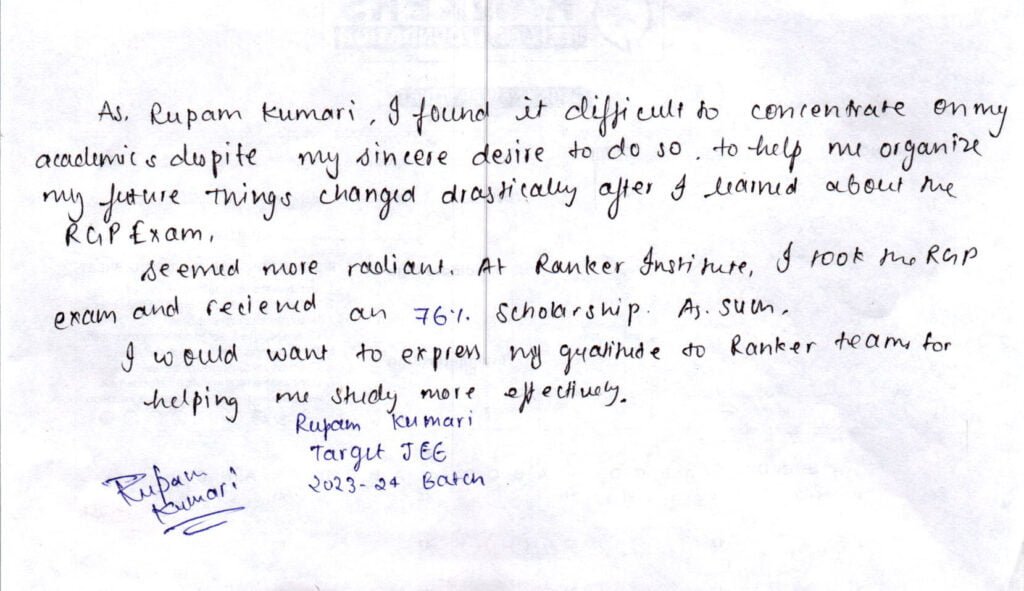 As. Rupam Kumari, I found it difficult to concentrate on my
academics despite my sincere desire to do so. to help me organize
my future Things changed drastically after I learned about the
RGP Exam.
seemed more radiant. At Ranker Institute, I took the RGP
exam and recieved an 76% scholarship. As. such.
I would want to express my gratitude to Ranker teams for
helping me study more effectively.
Rupam Kumari
Target JEE
2023-24 Batch
Rupam
Kumari